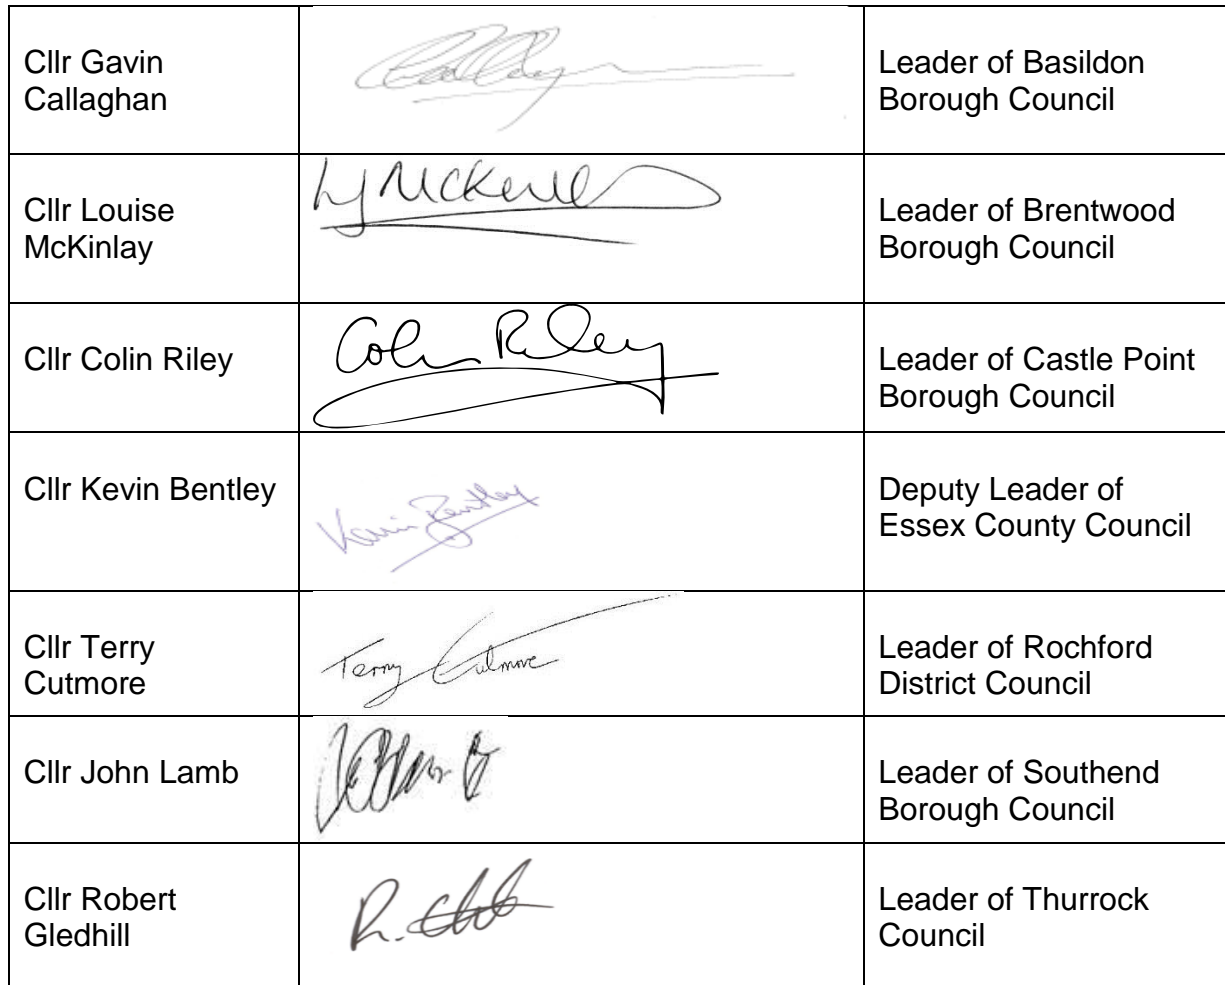 Cllr Gavin
Callaghan
Leader of Basildon
Borough Council
Cllr Louise
McKinlay
Leader of Brentwood
Borough Council
Cllr Colin Riley
Colin Riley
Leader of Castle Point
Borough Council
Cllr Kevin Bentley
Kevin Bentley
Deputy Leader of
Essex County Council
Cllr Terry
Cutmore
Terry Cutmore
Leader of Rochford
District Council
Cllr John Lamb
Leader of Southend
Borough Council
Cllr Robert
Gledhill
Leader of Thurrock
Council